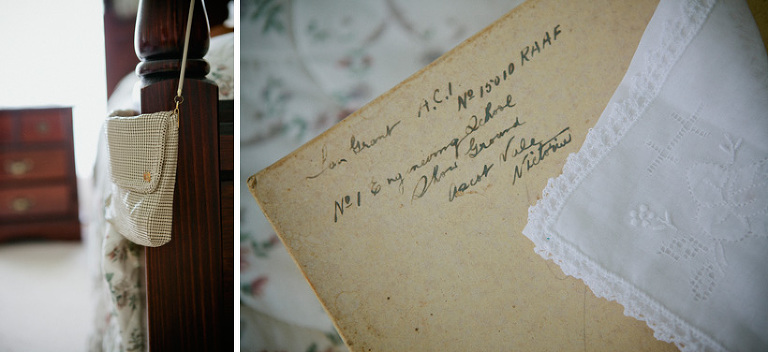 Ian Grant A.C.1 No 15010 RAAF
No 1 Engineering School
Show Ground
Ascot Vale
Victoria